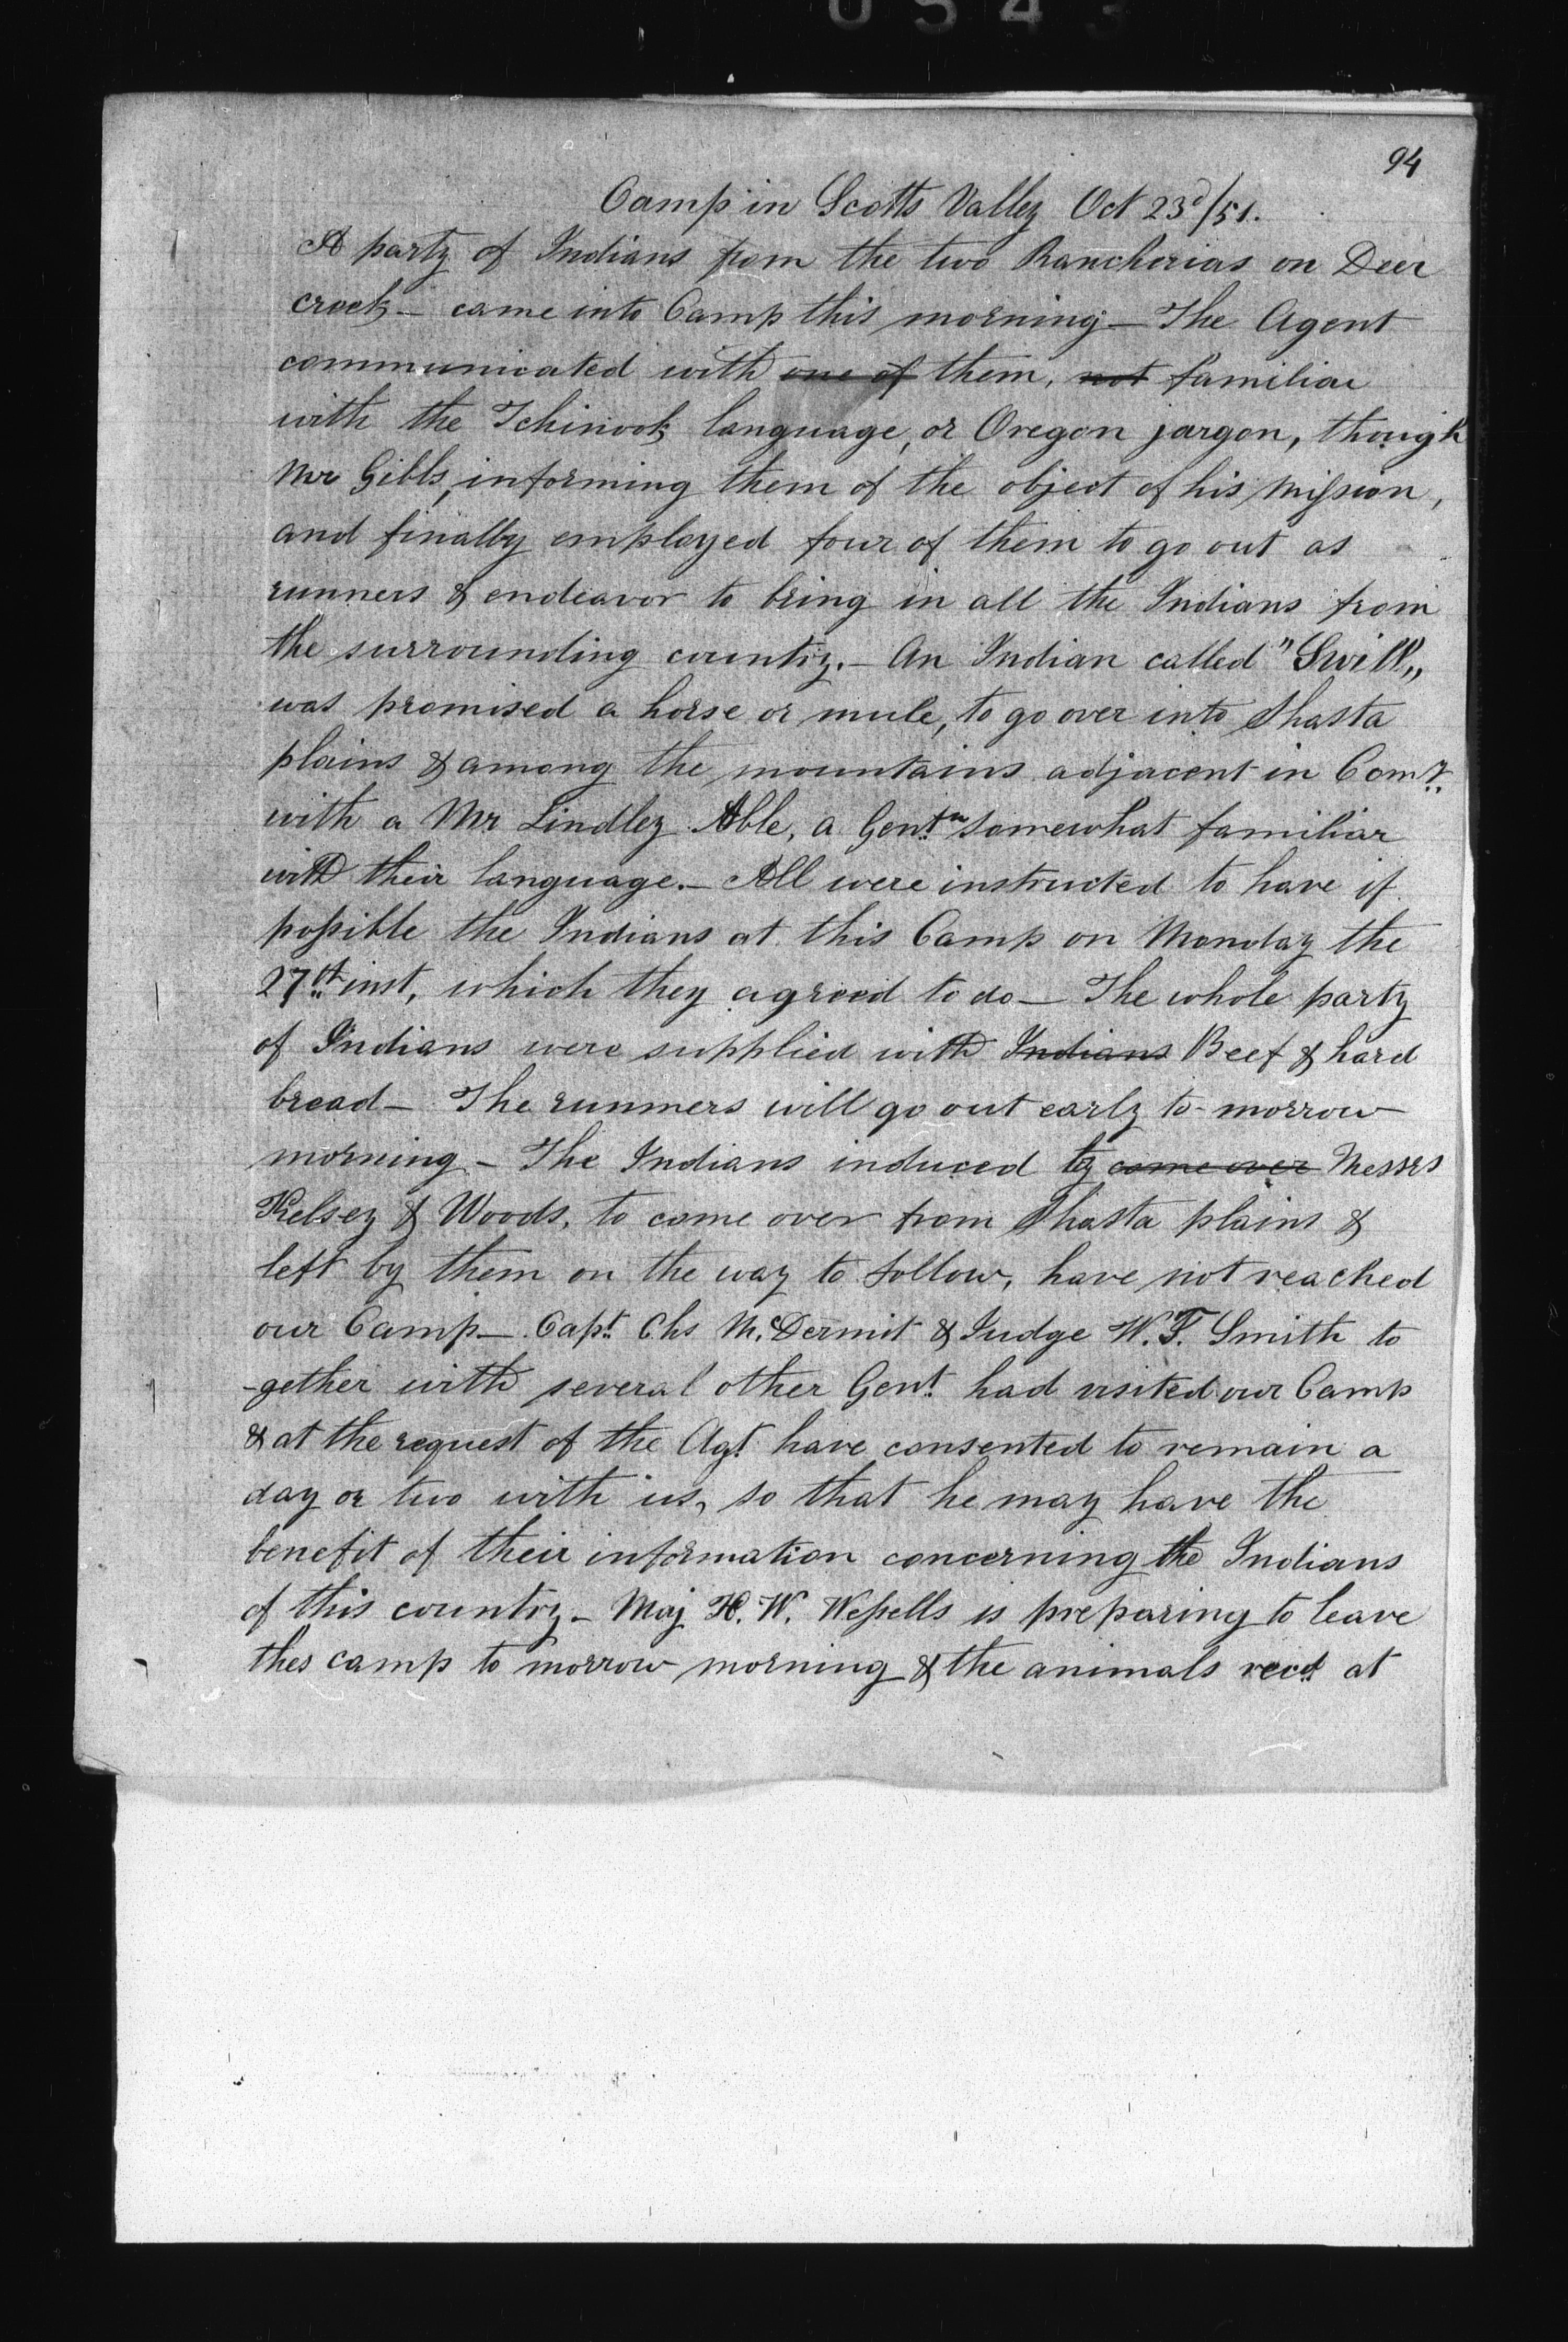 0543
94
Camp in Scotts Valley Oct 23d/51.
A party of Indians from the two Rancherias on Deer
creek – came into Camp this morning – The Agent
communicated with one of them, not familiar
with the Tchinook language, or Oregon jargon, though
Mr Gibbs, informing them of the object of his mission,
and finally employed four of them to go out as
runners & endeavor to bring in all the Indians from
the surrounding country. – An Indian called "Swill"
was promised a horse or mule, to go over into Shasta
plains & among the mountains adjacent in Comy.
with a Mr Lindley Able, a Gentn somewhat familiar
with their language. – All were instructed to have if
possible the Indians at this Camp on Monday the
27th inst, which they agreed to do – The whole party
of Indians were supplied with Indians Beef & hard
bread – The runners will go out early to-morrow
morning – The Indians induced by come over Messrs
Kelsey & Woods, to come over from Shasta plains &
left by them on the way to follow, have not reached
our Camp – Capt. Chs McDermit & Judge W. F. Smith to
-gether with several other Gent. had visited our Camp
& at the request of the Agt. have consented to remain a
day or two with us, so that he may have the
benefit of their information concerning the Indians
of this country – Maj H. W. Wessells is preparing to leave
thes camp to morrow morning & the animals recd. at